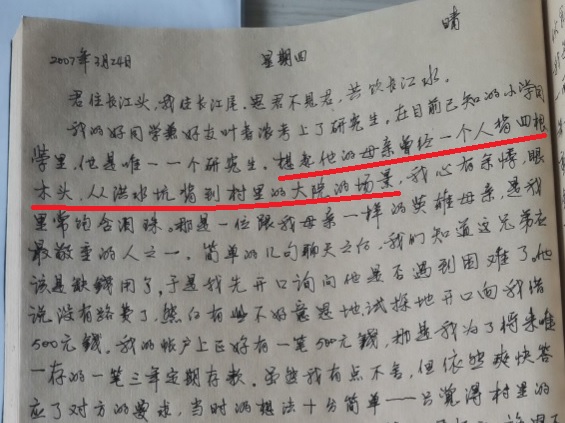 2007年3月24日 星期四 晴
君住长江头,我住长江尾。思君不见君,共饮长江水。
我的好同学兼好友叶者浓考上了研究生,在目前已知的小学同
学里,他是唯一一个研究生。想起他的母亲曾经一个人背四根
木头,从洪水坑背到村里的大院的场景,我心有余悸,眼
里常饱含泪珠。那是一位跟我母亲一样的英雄母亲,是我
最敬重的人之一。简单的几句聊天之后,我们知道这兄弟应
该是缺錢用了,于是我先开口询问他是否遇到困难了。他
说没有路费了,然后有些不好意思地试探地开口向我借
500元錢。我的帐户上正好有一笔500元錢,那是我为了将来唯
一存的一笔三年定期存款。虽然我有点不舍,但依然爽快答
应了对方的要求,当时的想法十分简单——只觉得村里的